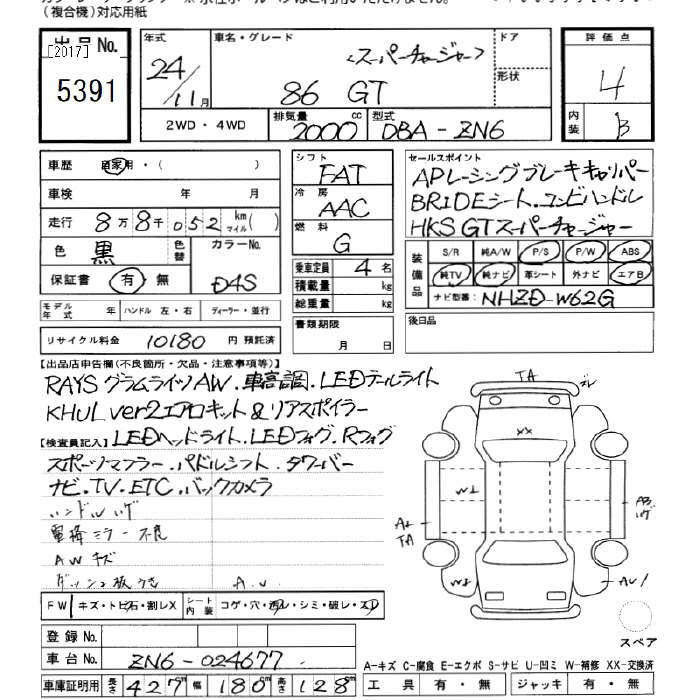 (複合機)対応用紙
出品No.
[2017]
5391
年式
24/11月
車名・グレード
<スーパーチャージャー>
86 GT
ドア
形状
2WD・4WD
排気量
2000 cc
型式
DBA-ZN6
評価点
4
内装
B
車歴 自家用・( )
車検 年 月
走行 8万8千052 km マイル( )
色 黒
色替
カラーNo.
D4S
保証書 有・無
モデル年式 年 ハンドル 左・右 ディーラー・並行
リサイクル料金 10180 円 預託済
シフト
FAT
冷房
AAC
燃料
G
乗車定員 4 名
積載量 kg
総重量 kg
書類期限
月 日
セールスポイント
APレーシングブレーキキャリパー
BRIDEシート.コンビハンドル
HKS GTスーパーチャージャー
装備品
S/R 純A/W P/S P/W ABS
純TV 純ナビ 革シート 外ナビ エアB
ナビ型番: NHZD-W62G
後日品
【出品店申告欄(不良箇所・欠品・注意事項等)】
RAYSグラムライツAW.車高調.LEDテールライト
KHUL ver2エアロキット&リアスポイラー
【検査員記入】LEDヘッドライト.LEDフォグ.Rフォグ
スポーツマフラー.パドルシフト.タワーバー
ナビ.TV.ETC.バックカメラ
ハンドルハゲ
電格ミラー不良
AWキズ
TA
XX
W2
A2
TA
A3
ハゲ
W2
AU1
スペア
FW キズ・トビ石・割レX
シート内装 コゲ・穴・スレ・シミ・破レ・ヌレ
登録No.
車台No. ZN6-024677
車庫証明用 長さ 427m 幅 180m 高さ 128m
A-キズ C-腐食 E-エクボ S-サビ U-凹ミ W-補修 XX-交換済
工具 有・無 ジャッキ 有・無